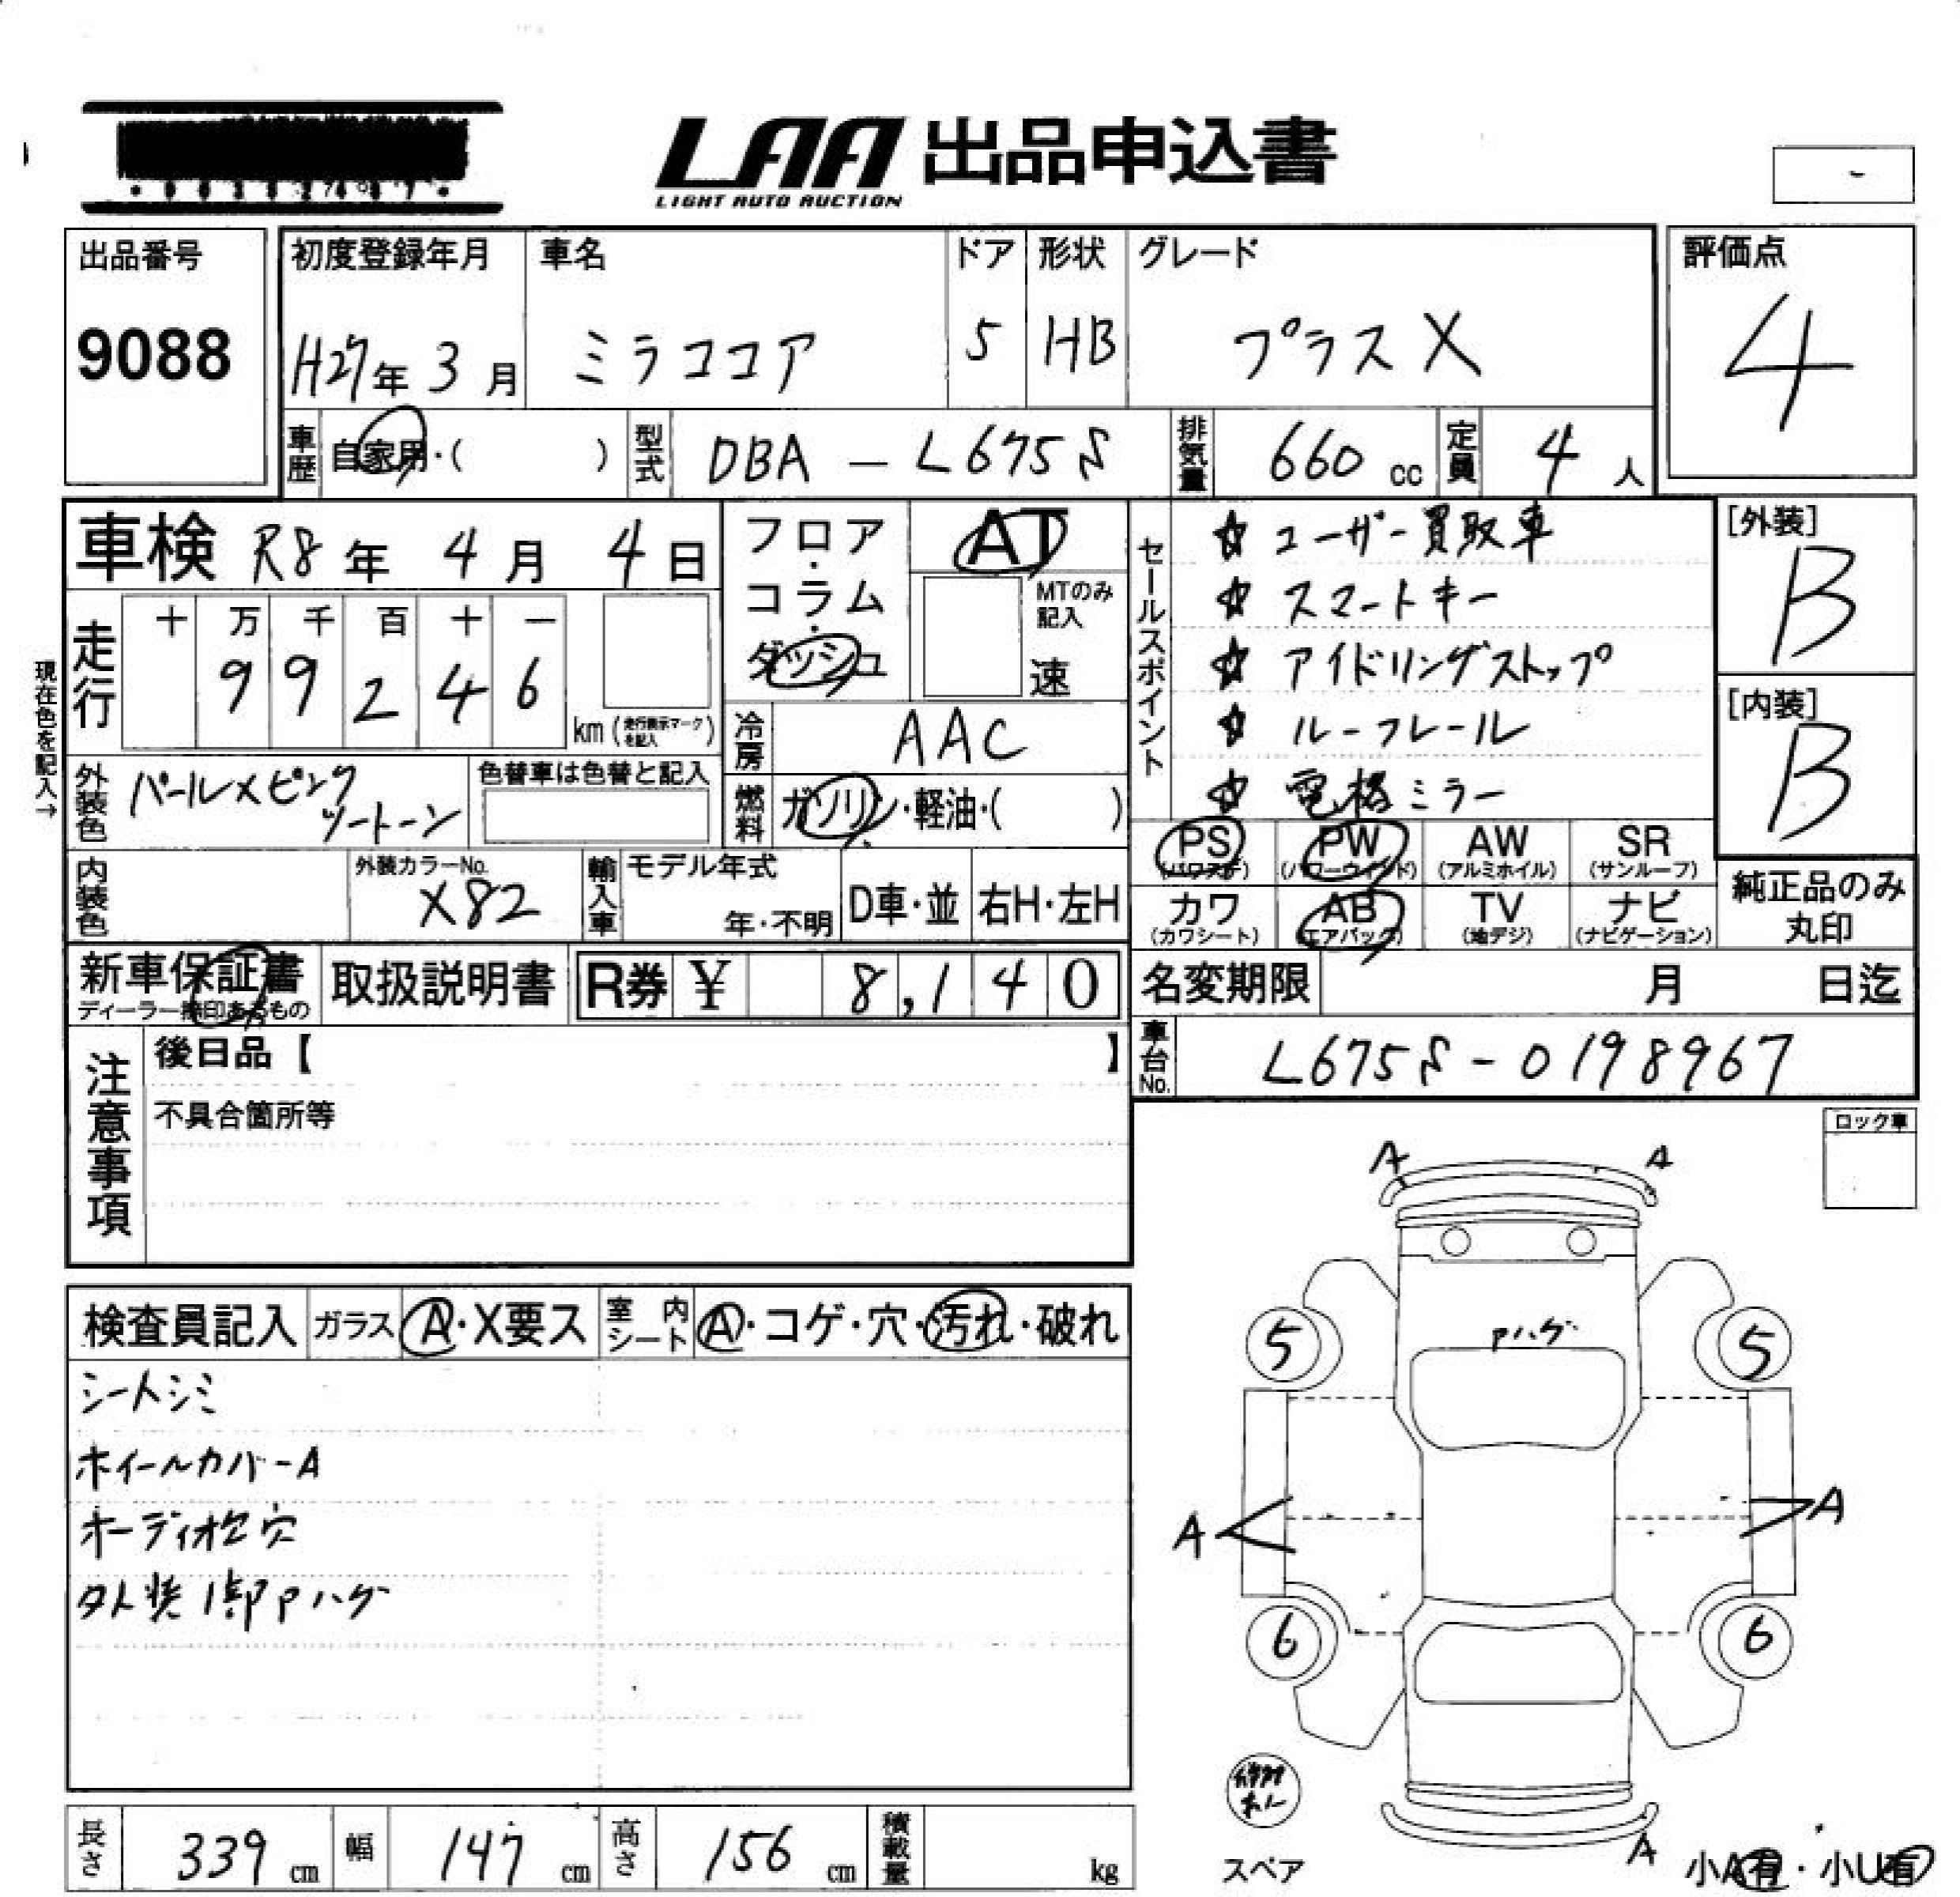 LAA 出品申込書
LIGHT AUTO AUCTION
出品番号
9088
初度登録年月
H27年 3 月
車名
ミラココア
ドア
5
形状
HB
グレード
プラス X
評価点
4
車歴 自家用・( )
型式 DBA － L675S
排気量 660 cc
定員 4 人
車検 R8 年 4 月 4 日
フロア・コラム・ダッシュ
AT
MTのみ記入
速
セールスポイント
☆ ユーザー買取車
☆ スマートキー
☆ アイドリングストップ
☆ ルーフレール
☆ 電格ミラー
[外装]
B
[内装]
B
現在色を記入→
走行
十 万 千 百 十 一
9 9 2 4 6
km (走行表示マークを記入)
冷房 AAC
外装色 パール×ピンク ツートーン
色替車は色替と記入
燃料 ガソリン・軽油・( )
PS (パワステ)
PW (パワーウインド)
AW (アルミホイル)
SR (サンルーフ)
カワ (カワシート)
AB (エアバック)
TV (地デジ)
ナビ (ナビゲーション)
純正品のみ丸印
内装色
外装カラーNo.
X82
輸入車
モデル年式
年・不明
D車・並
右H・左H
新車保証書
ディーラー捺印あるもの
取扱説明書
R券 ¥ 8,140
名変期限 月 日迄
車台No. L675S - 0198967
注意事項
後日品【 】
不具合箇所等
ロック車
検査員記入
ガラス A・X要ス
室内シート A・コゲ・穴・汚れ・破れ
シートシミ
ホイールカバーA
オーディオ位穴
外装1部Pハゲ
A
A
5
Pハゲ
5
A
A
6
6
A
スペア
小A有・小U有
長さ 339 cm
幅 147 cm
高さ 156 cm
積載量 kg